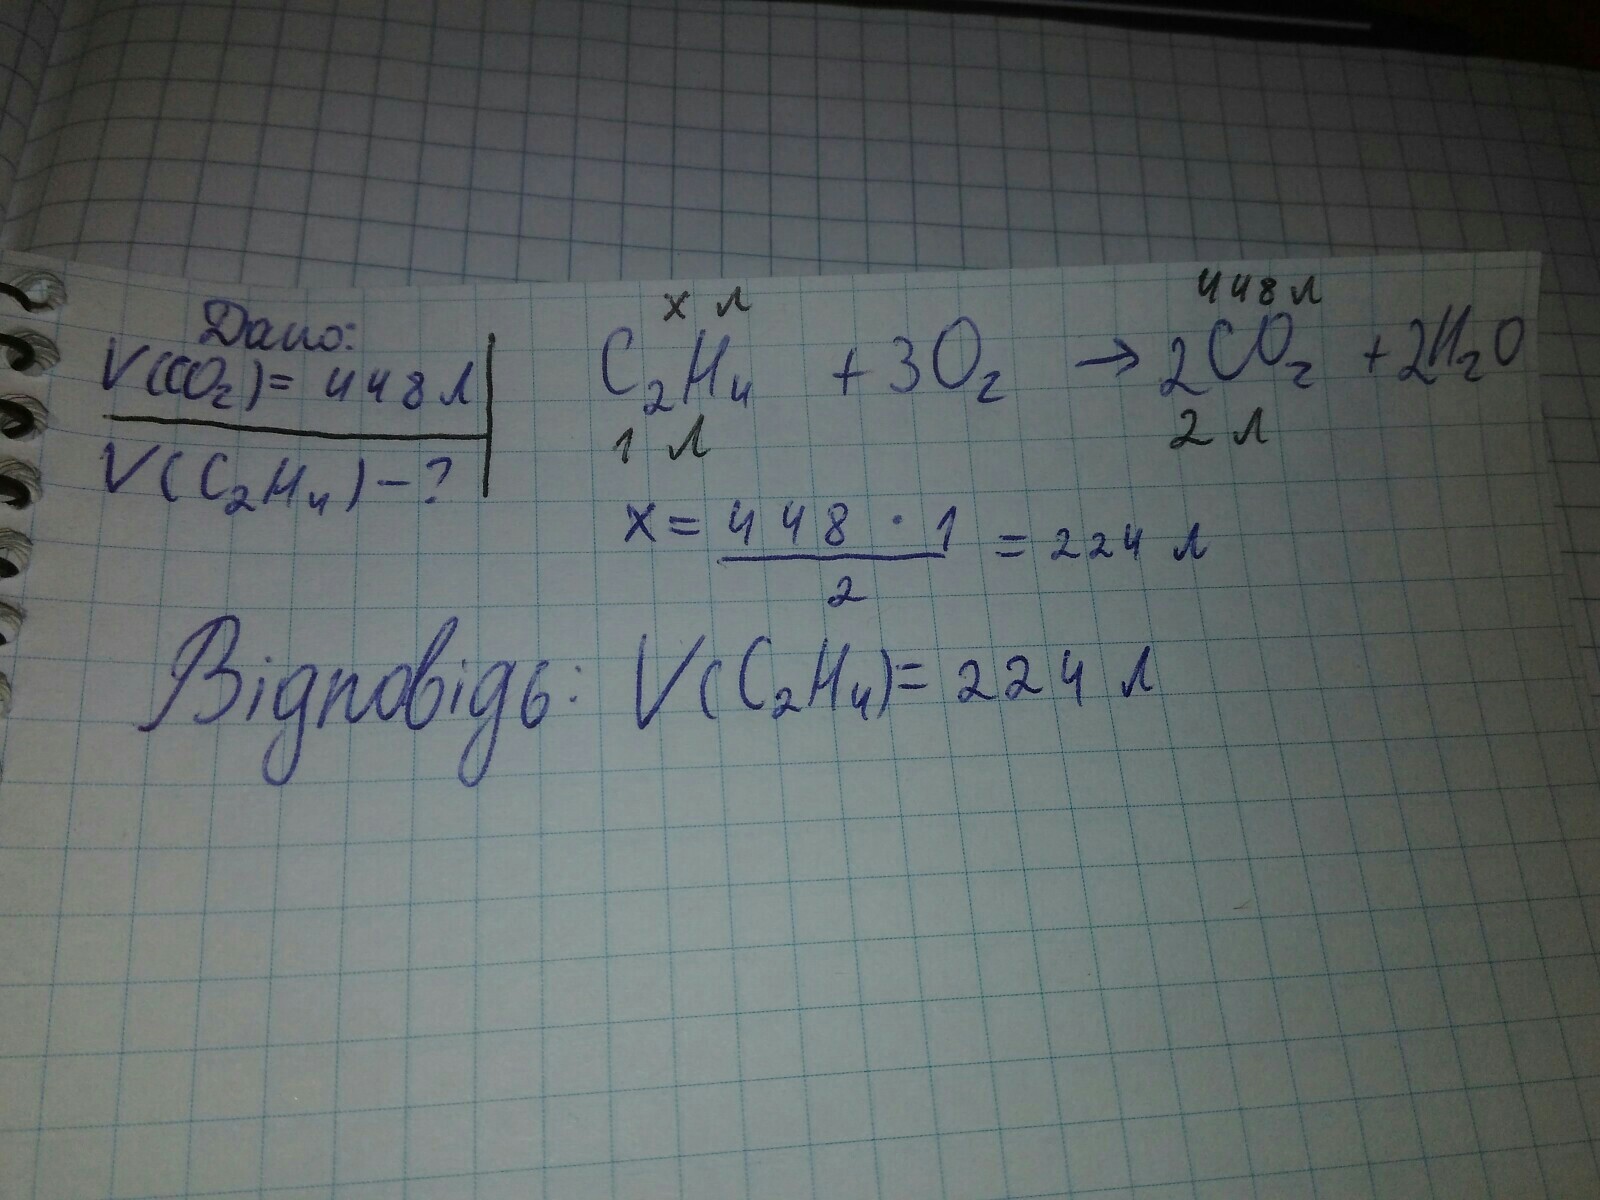 Дано:
V(CO₂) = 448 л
V(C₂H₄) - ?
x л 448 л
C₂H₄ + 3O₂ → 2CO₂ + 2H₂O
1 л 2 л
x = 448 · 1 / 2 = 224 л
Відповідь: V(C₂H₄) = 224 л